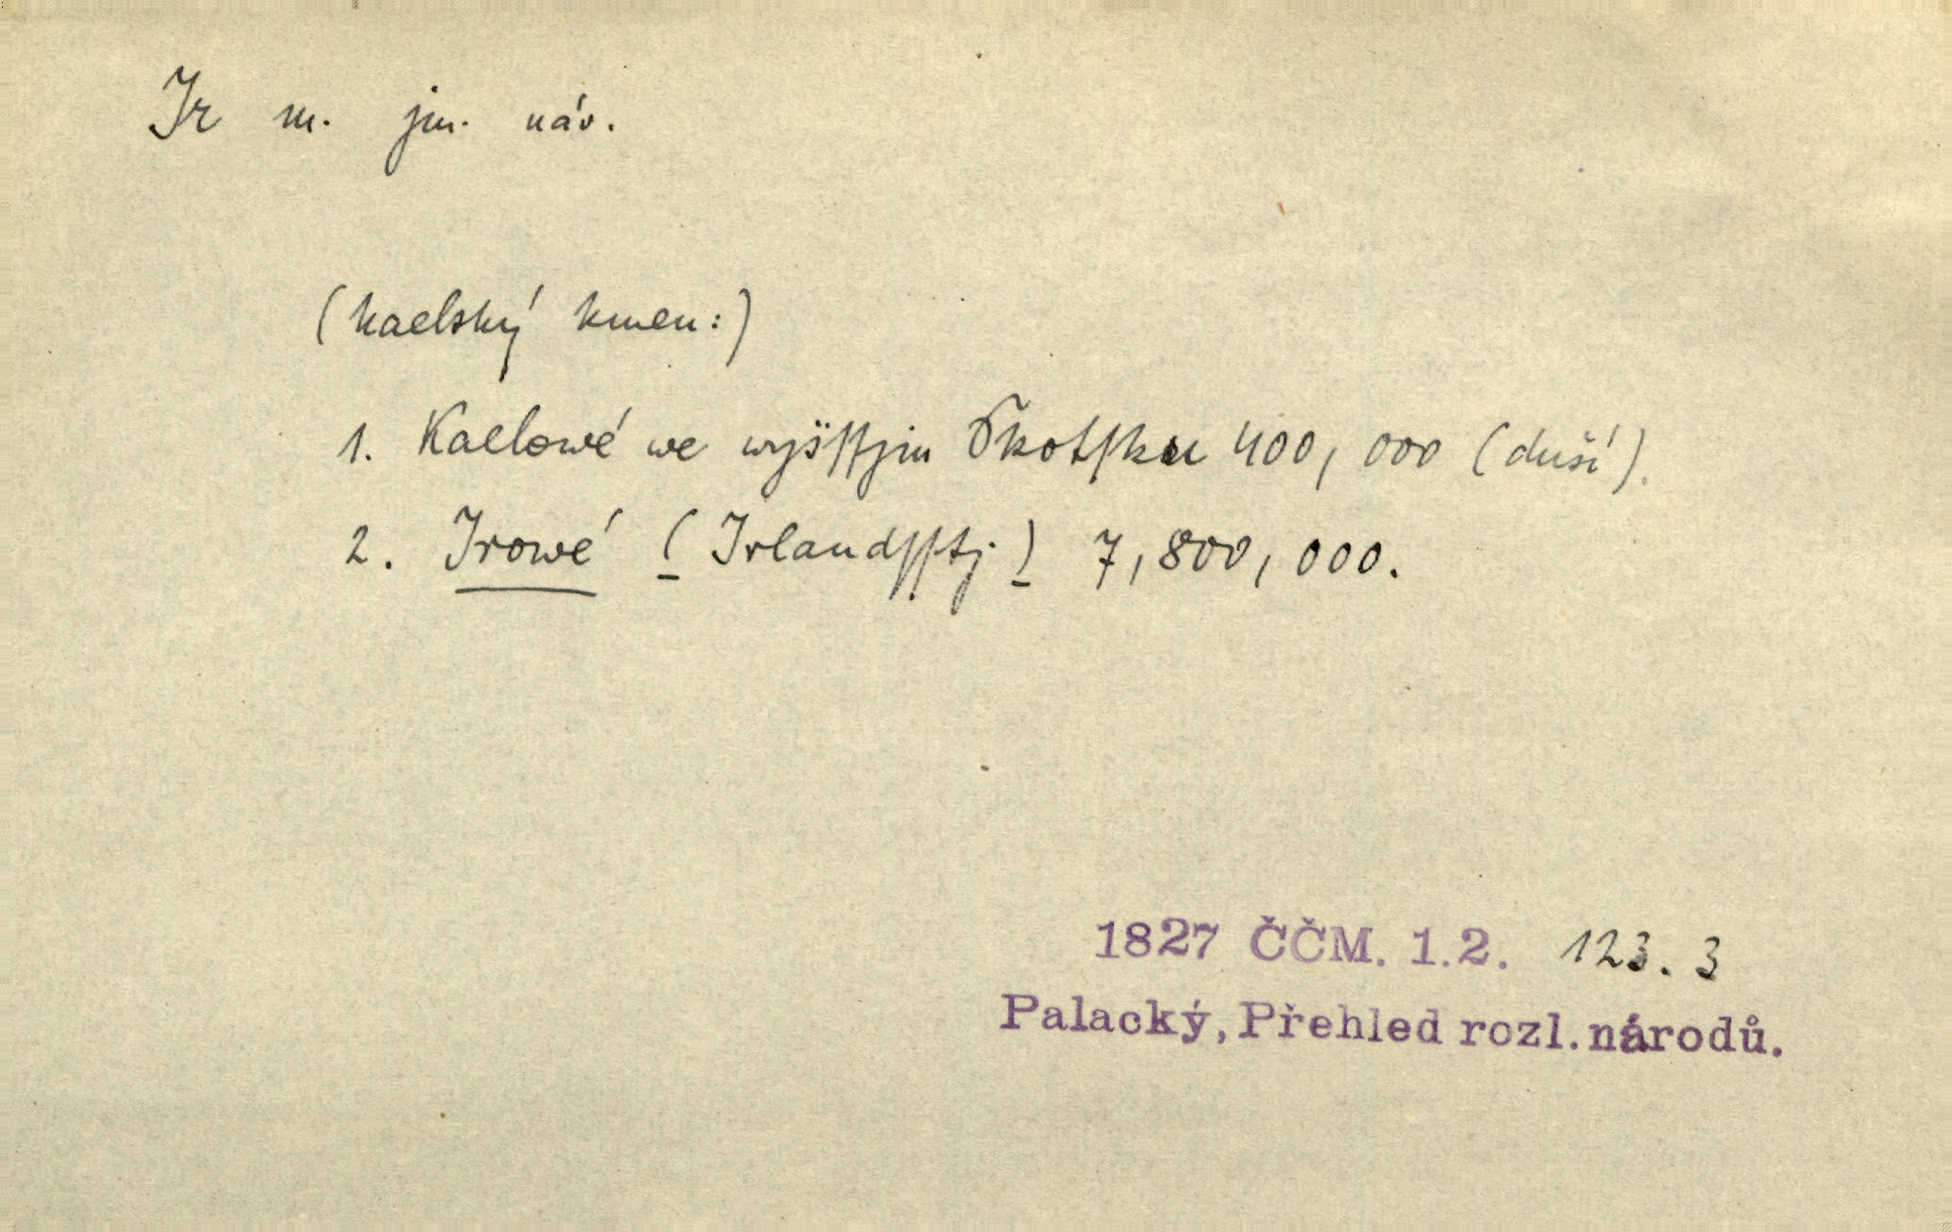 Ir m. jm. náv.
(kaelský kmen:)
1. Kaelowé we wyšſſjm Skotſku 400,000 (duší).
2. Irowé (Irlandſſtj) 7,800,000.
1827 ČČM. 1.2. 123.3
Palacký, Přehled rozl. národů.